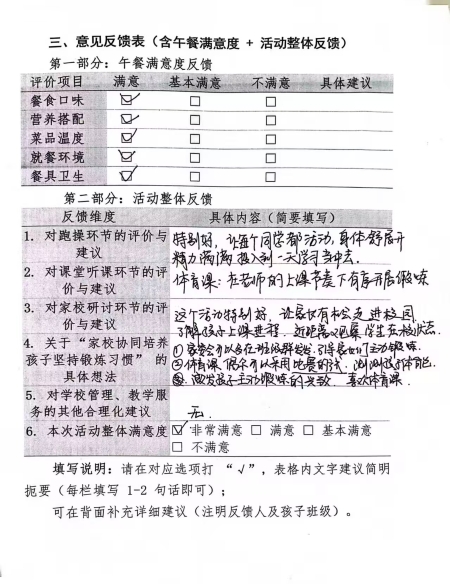 三、意见反馈表（含午餐满意度 + 活动整体反馈）
第一部分：午餐满意度反馈
评价项目 满意 基本满意 不满意 具体建议
餐食口味 ☑ □ □
营养搭配 ☑ □ □
菜品温度 ☑ □ □
就餐环境 ☑ □ □
餐具卫生 ☑ □ □
第二部分：活动整体反馈
反馈维度 具体内容（简要填写）
1. 对跑操环节的评价与
建议
特别好，让每个同学都活动，身体舒展开
精力满满投入到一天学习当中去。
2. 对课堂听课环节的评
价与建议
体育课：在老师的上课节奏下有序开展锻炼
3. 对家校研讨环节的评
价与建议
这个活动特别好，让家长有机会走进校园
了解孩子上课进程，近距离观察学生在校状态。
4. 关于“家校协同培养
孩子坚持锻炼习惯” 的
具体想法
①家委会可以多在班级群发，引导家长们主动锻炼
②体育课，偶尔可以采用比赛的方式，测测孩子体能
③激发孩子主动锻炼的兴致，喜欢体育课
5. 对学校管理、教学服
务的其他合理化建议
无.
6. 本次活动整体满意度 ☑ 非常满意 □ 满意 □ 基本满意
□ 不满意
填写说明：请在对应选项打 “√”，表格内文字建议简明
扼要（每栏填写 1-2 句话即可）；
可在背面补充详细建议（注明反馈人及孩子班级）。